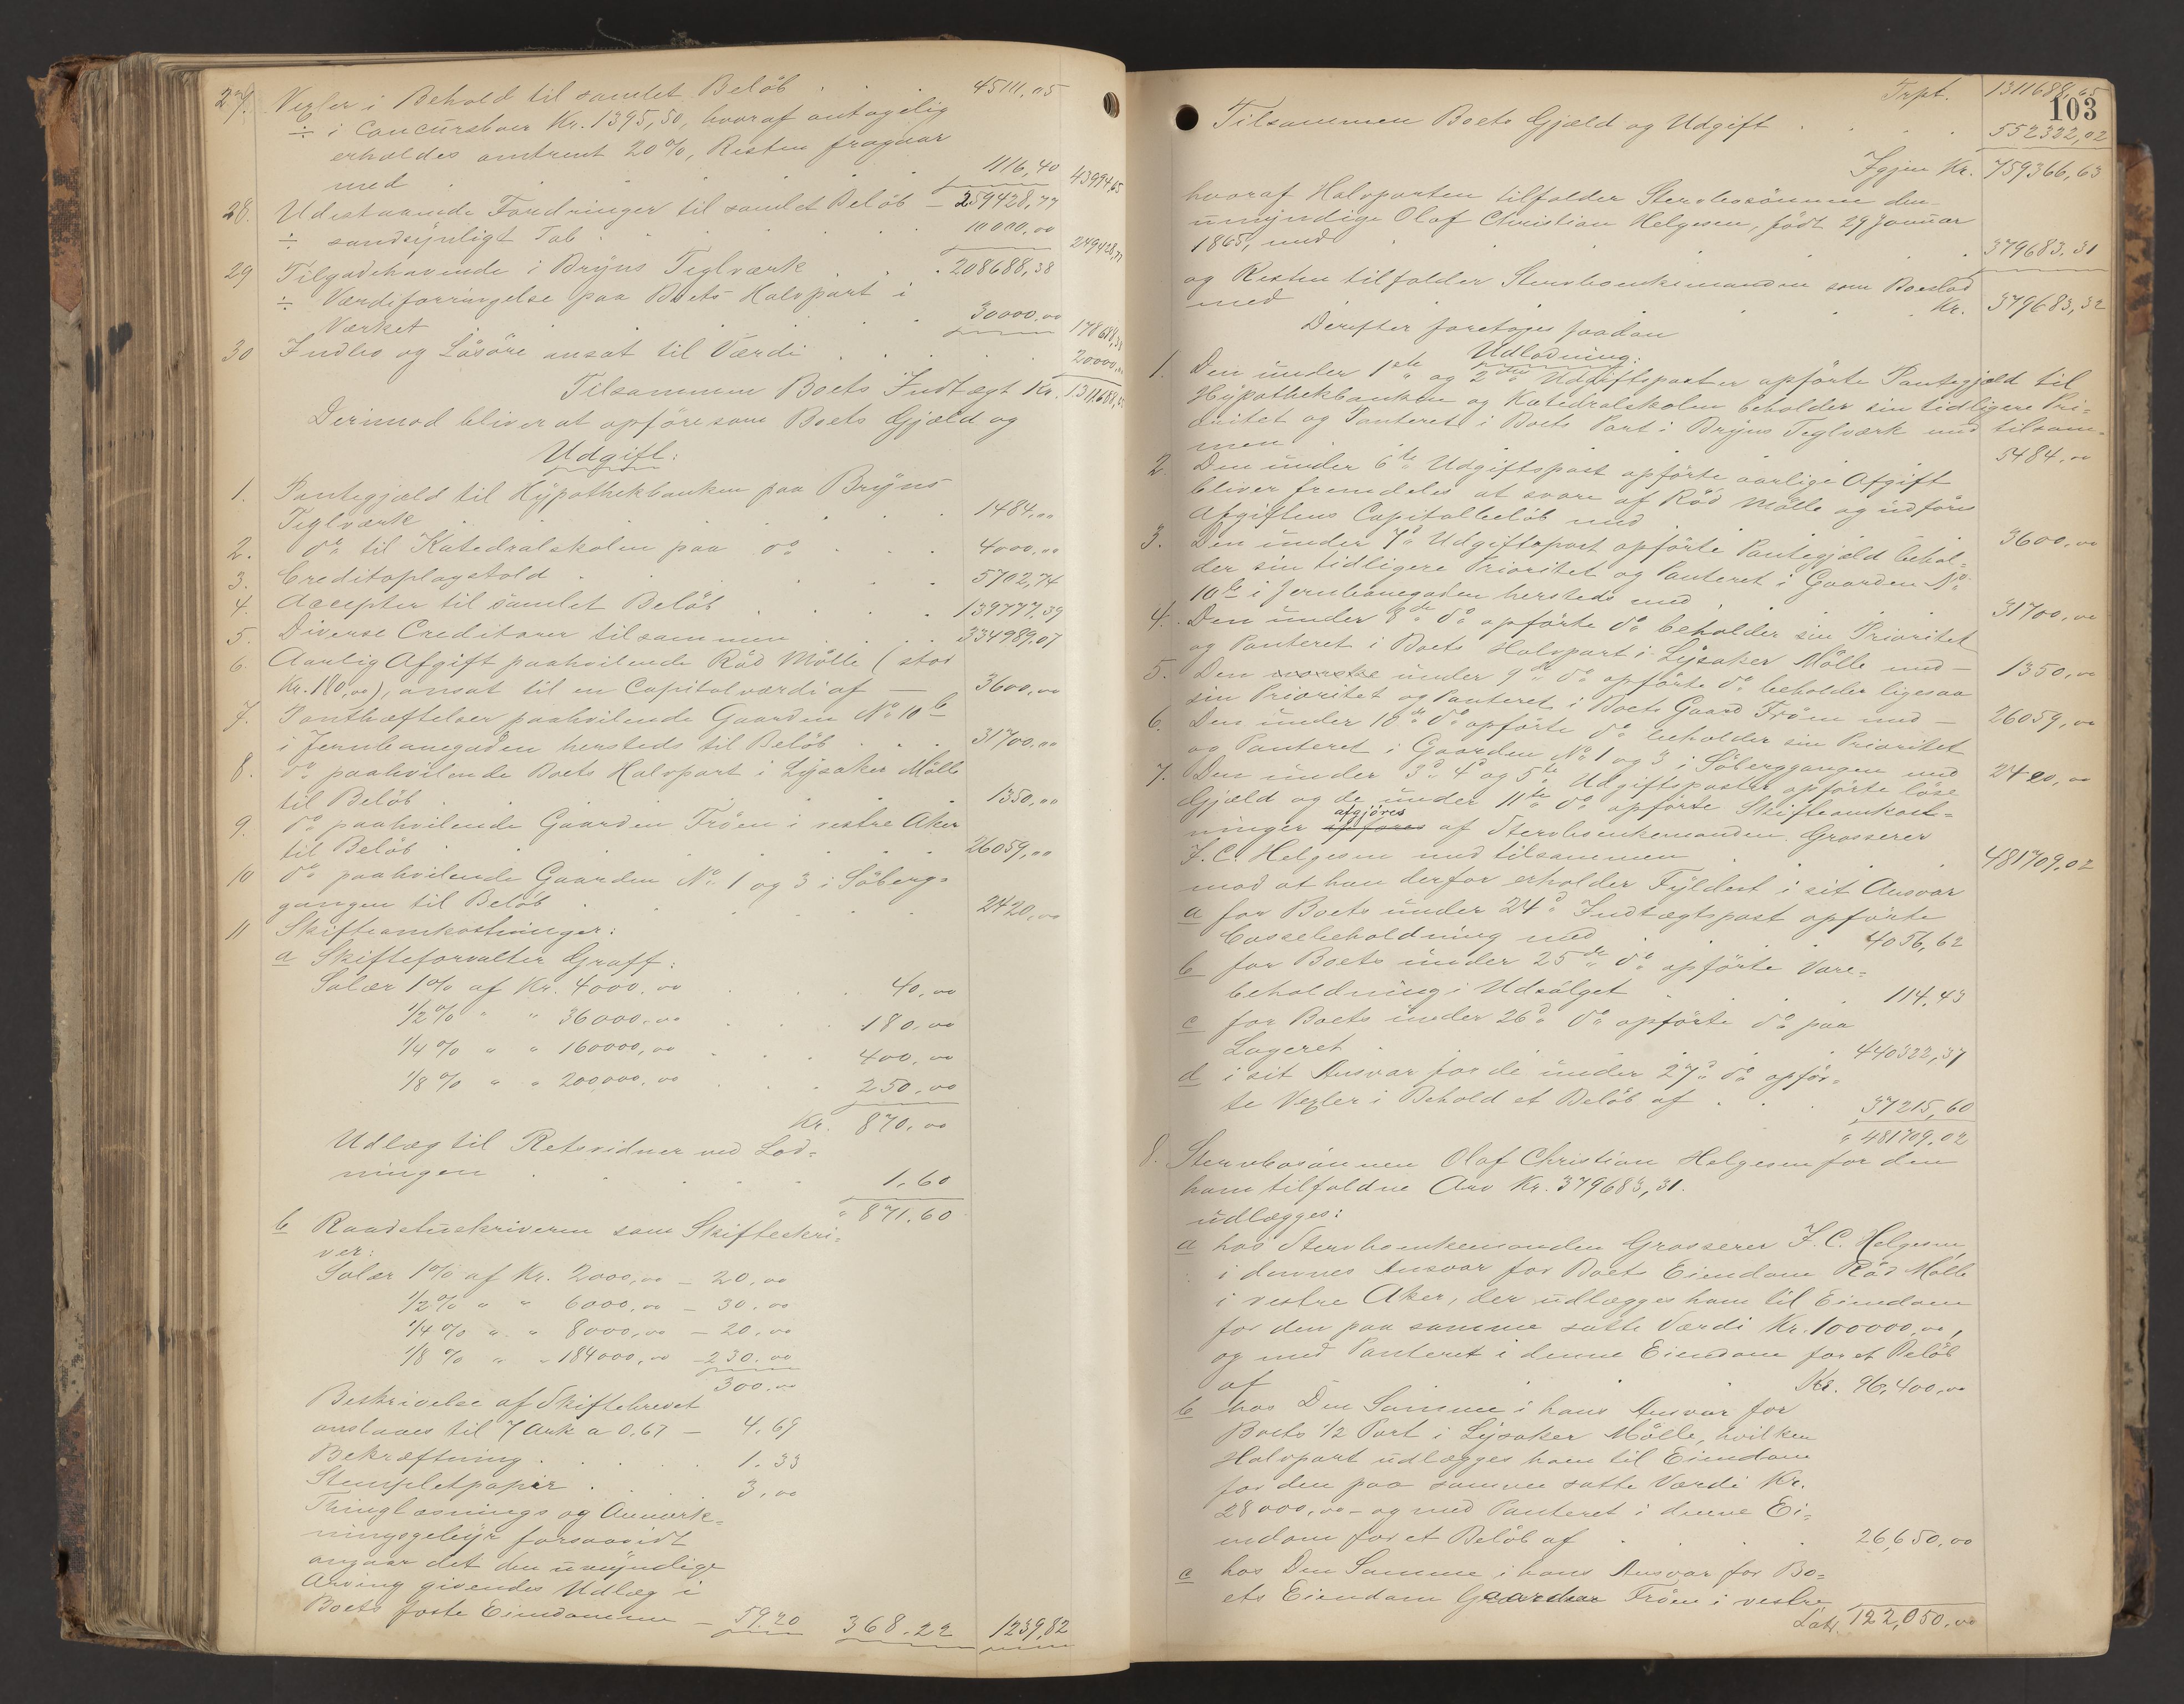 27. Vexler i Behold til samlet Beløb . . 45111,05
÷ i Concursboer Kr. 1395,50, hvoraf antagelig
erholdes omtrent 20%, Resten fragaar
med . . . . . 1116,40 43994,65
28. Udestaaende Fordringer til samlet Beløb – 259428,77
÷ sandsynligt Tab . . . . 10000,00 249428,77
29 Tilgodehavende i Bryns Teglværk . . . 208688,38
÷ Værdiforringelse paa Boets Halvpart i
Værket . . . . . 30000,00 178688,38
30 Indbo og Løsøre ansat til Værdi . . . . 20000,00
Tilsammen Boets Indtægt Kr. 1311688,65
Derimod bliver at opføre som Boets Gjæld og
Udgift:
1. Pantegjæld til Hypothekbanken paa Bryns
Teglværk . . . . . 1484,00
2. do til Katedralskolen paa do . . . 4000,00
3. Creditoplagstold . . . . . 5702,74
4. Accepter til samlet Beløb . . . . 139777,39
5. Diverse Creditorer tilsammen . . . . 334989,07
6. Aarlig Afgift paahvilende Rød Mølle (stor
Kr. 180,00), ansat til en Capitalværdi af — 3600,00
7. Panthæftelser paahvilende Gaarden No 10 b
i Jernbanegaden hersteds til Beløb . . . 31700,00
8. do paahvilende Boets Halvpart i Lysaker Mølle
til Beløb . . . . . 1350,00
9. do paahvilende Gaarden Frøen i vestre Aker
til Beløb . . . . . 26059,00
10 do paahvilende Gaarden No 1 og 3 i Søberg=
gangen til Beløb . . . . . 2420,00
11 Skifteomkostninger:
a Skifteforvalter Graff:
Salær 1% af Kr. 4000,00 . . . 40,00
1/2% " " 36000,00 . . . 180,00
1/4% " " 160000,00 . . . 400,00
1/8% " " 200000,00 . . . 250,00
Kr. 870,00
Udlæg til Retsvidner ved Lod=
ningen . . . . . 1,60
" 871,60
b Raadstuskriveren som Skifteskri=
ver:
Salær 1% af Kr. 2000,00 – 20,00
1/2% " " 6000,00 – 30,00
1/4% " " 8000,00 – 20,00
1/8% " " 184000,00 – 230,00
300,00
Beskrivelse af Skiftebrevet
anslaaes til 7 Ark a 0,67 – 4,69
Bekræftning . . . . 1,33
Stempletpapir . . . 3,00
Thinglæsnings og Anmærk=
ningsgebyr forsaavidt
angaar det den umyndige
Arving givendes Udlæg i
Boets faste Eiendomme – 59,20 368,22 1239,82
103
Trpt. 1311688,65
Tilsammen Boets Gjæld og Udgift . . . . 552322,02
Igjen Kr. 759366,63
hvoraf Halvparten tilfalder Stervbosønnen den
umyndige Olaf Christian Helgesen, født 29 Januar
1865, med . . . . . 379683,31
og Resten tilfalder Stervboenkemanden som Boeslod
med . . . . Kr. 379683,32
Derefter foretages saadan
Udlodning:
1. Den under 1ste og 2den Udgiftsposter opførte Pantegjæld til
Hypothekbanken og Katedralskolen beholder sin tidligere Pri=
oritet og Panteret i Boets Part i Bryns Teglværk med tilsam=
men . . . . . 5484,00
2. Den under 6te Udgiftspost opførte aarlige Afgift
bliver fremdeles at svare af Rød Mølle og udføres
Afgiftens Capitalbeløb med . . . . 3600,00
3. Den under 7de Udgiftspost opførte Pantegjæld behol=
der sin tidligere Prioritet og Panteret i Gaarden No
10 b i Jernbanegaden hersteds med . . . 31700,00
4. Den under 8de do opførte do beholder sin Prioritet
og Panteret i Boets Halvpart i Lysaker Mølle med – 1350,00
5. Den under 9de do opførte do beholder ligesaa
sin Prioritet og Panteret i Boets Gaard Frøen med – 26059,00
6. Den under 10de do opførte do beholder sin Prioritet
og Panteret i Gaarden No 1 og 3 i Søberggangen med 2420,00
7. Den under 3d 4d og 5te Udgiftsposter opførte løse
Gjæld og de under 11te do opførte Skifteomkost=
ninger afgjøres af Stervboenkemanden Grosserer
F. C. Helgesen med tilsammen . . . 481709,02
mod at han derfor erholder Fyldest i sit Ansvar
a for Boets under 24d Indtægtspost opførte
Cassebeholdning med . . . 4056,62
b for Boets under 25de do opførte Vare=
beholdning i Udsalget . . . 114,43
c for Boets under 26d do opførte do paa
Lageret . . . . 440322,37
d i sit Ansvar for de under 27d do opfør=
te Vexler i Behold et Beløb af . . . 37215,60
" 481709,02
8. Stervbosønnen Olaf Christian Helgesen for den
ham tilfaldne Arv Kr. 379683,31.
udlægges:
a hos Stervboenkemanden Grosserer F. C. Helgesen
i dennes Ansvar for Boets Eiendom Rød Mølle
i vestre Aker, der udlægges ham til Eiendom
for den paa samme satte Værdi Kr. 100000,00,
og med Panteret i denne Eiendom for et Beløb
af . . . . Kr. 96,400,00
b hos Den Samme i hans Ansvar for
Boets 1/2 Part i Lysaker Mølle, hvilken
Halvpart udlægges ham til Eiendom
for den paa samme satte Værdi Kr.
28000,00 – og med Panteret i denne Ei=
endom for et Beløb af . . . 26,650,00
c hos Den Samme i hans Ansvar for Bo=
ets Eiendom Gaarden Frøen i vestre
Lat. 122,050,00